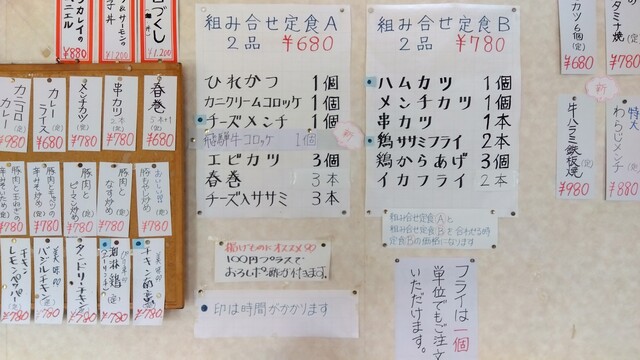 組み合せ定食A
2品 ¥680
ひれかつ 1個
カニクリームコロッケ 1個
チーズメンチ 1個
飛騨牛コロッケ 1個
エビカツ 3個
春巻 3本
チーズ入ササミ 3本
組み合せ定食B
2品 ¥780
ハムカツ 1個
メンチカツ 1個
串カツ 1本
鶏ササミフライ 2本
鶏からあげ 3個
イカフライ 2本
組み合せ定食Aと
組み合せ定食Bを合わせる時
定食Bの価格になります
揚げものにオススメ
100円プラスで
おろしポン酢が付きます。
印は時間がかかります
フライは一個
単位でもご注文
いただけます。
¥880
¥1,200
¥1,200
春巻
5本
¥680
串カツ(定)
2本
¥780
メンチカツ(定)
¥780
カレーライス
¥680
カニコロカレー
¥980
豚肉となす炒め(定)
¥780
豚肉とピーマン炒め(定)
¥780
¥780
¥780
¥780
チキン
¥780
酒林鶏(定)
¥780
タンドリーチキン
¥780
美味 バジルチキン
¥780
レモンペッパーチキン
¥780
カツ6個(定)
¥680
タミナ焼(定)
¥780
新
牛ハラミ鉄板焼(定)
¥980
特大わらじメンチ(定)
¥880